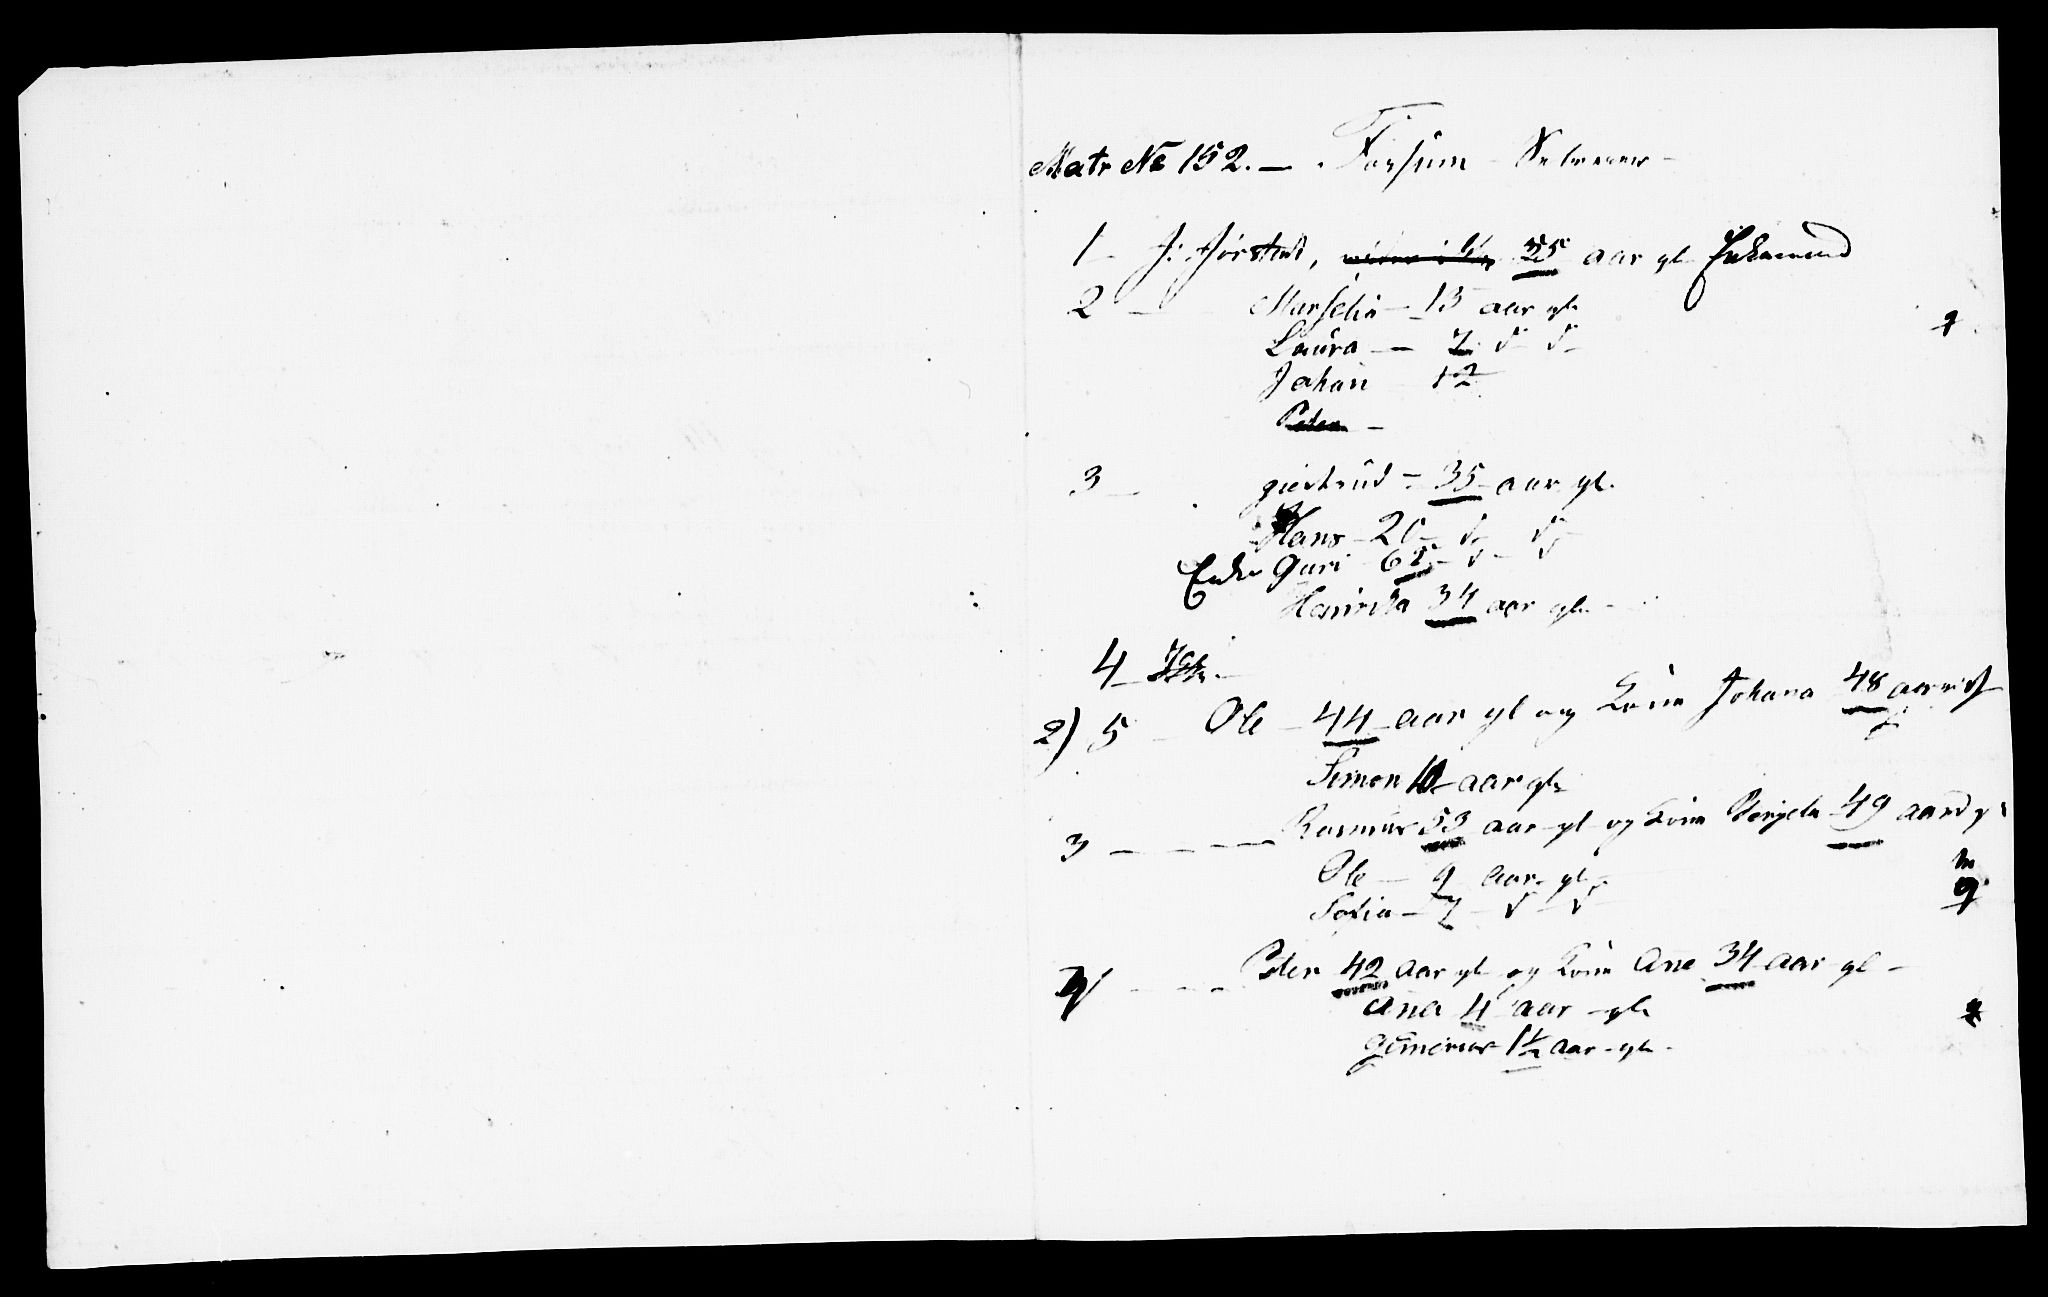 Matr № 152. — Forsum
1 — J: Jörstad, 55 aar gl Enkemand
2 — Marselia — 13 aar gl
Laura — 7 d d
Johan 12
Peder —
3 — giertrud = 35 aar gl.
Hans — 20 — d — d
Enke Guri 65 — d — d
Henrika 34 aar gl.
4 —
2) 5 — Ole — 44 aar gl og Kone Johana 48 aar
Simon 10 aar gl
3 — — — Rasmus 53 aar gl og Kone 49 aar g
Ole — 9 aar gl
Sofia — 7 — d — d
4 — — — Peder 42 aar gl og Kone Ane 34 aar gl —
Ana 4 aar gl
1½ aar gl.